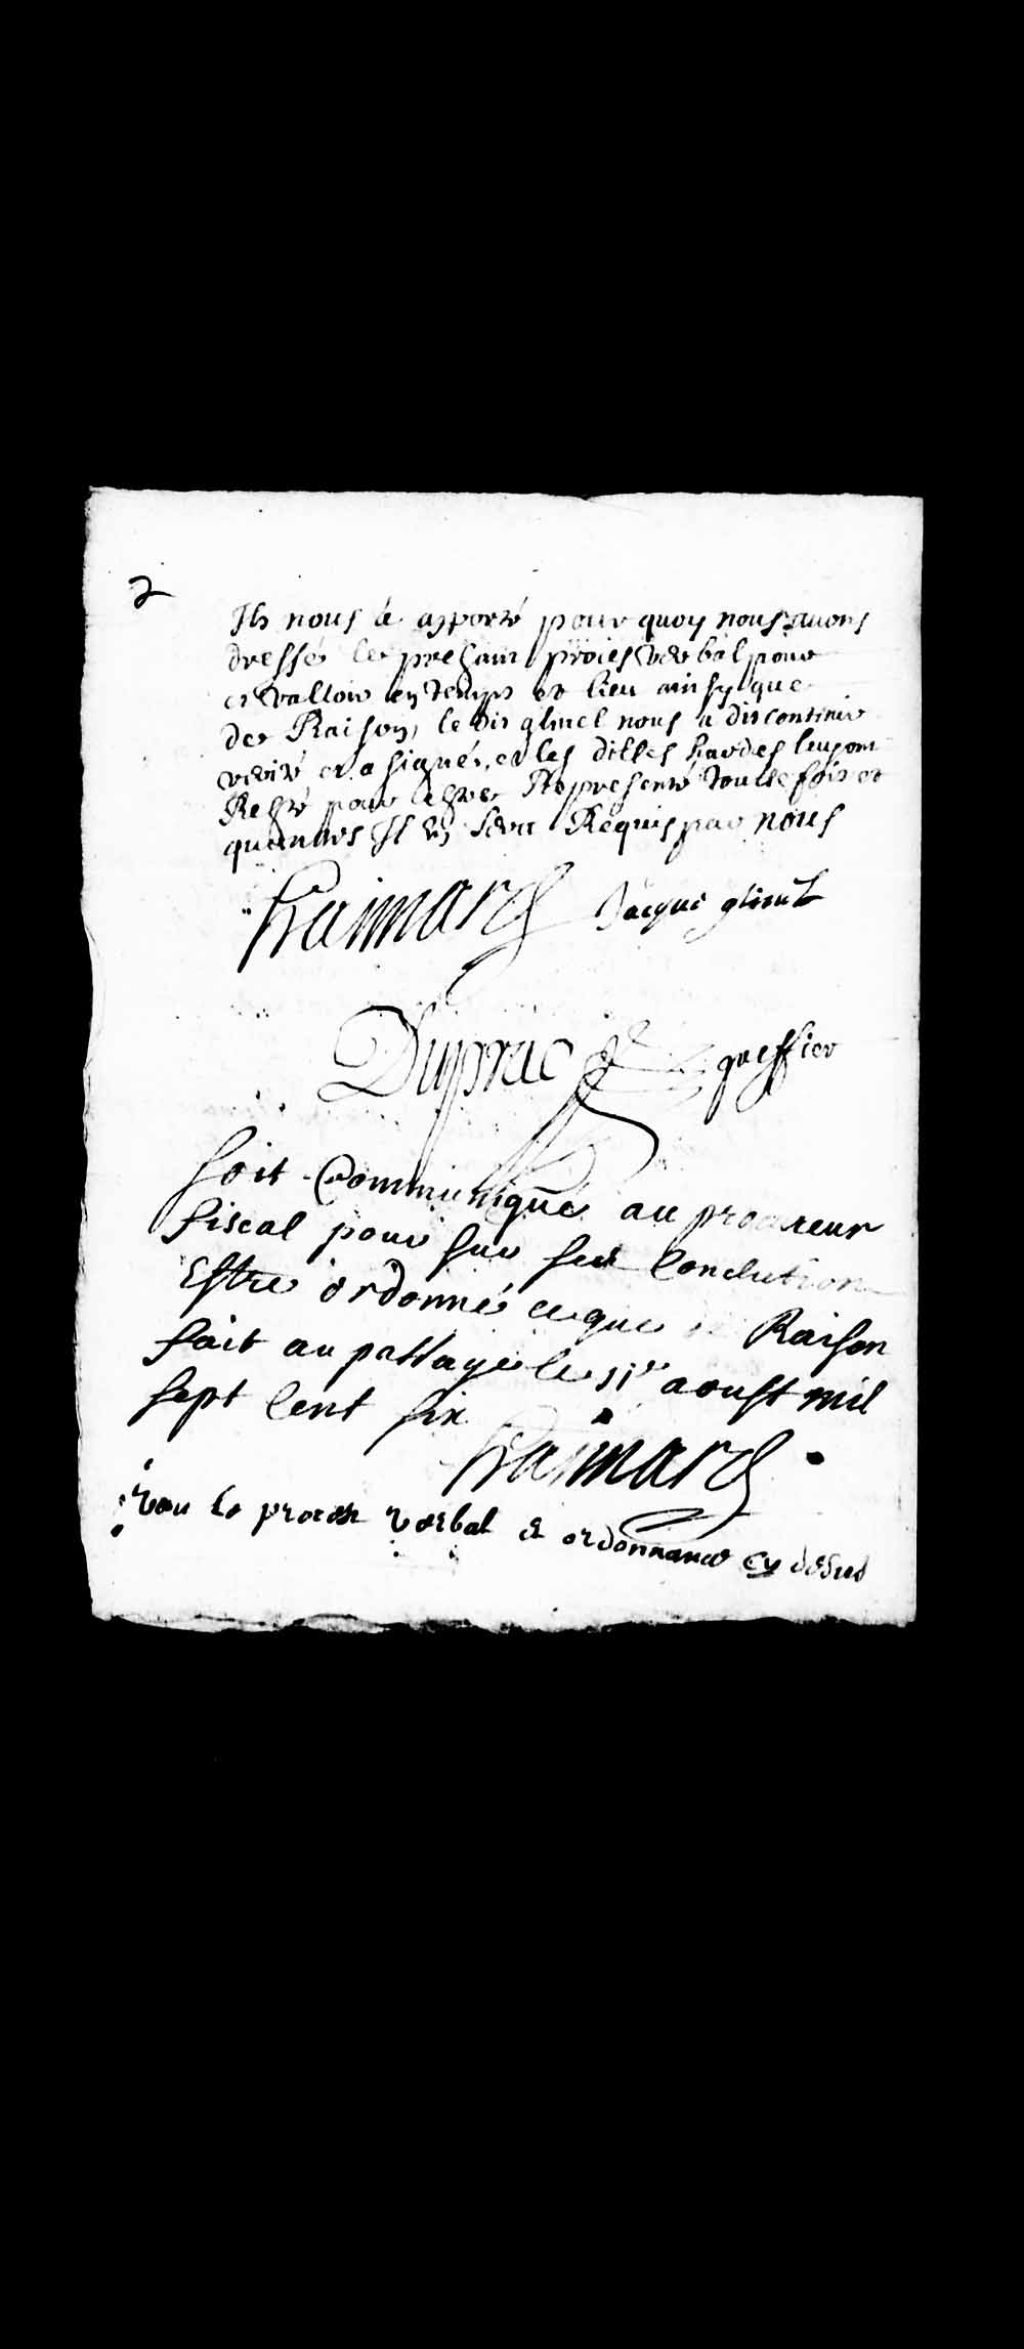 2
Ils nous à aporté pour quoy nous avons
dressé le presant proies verbal pour
et valloir en temps et lieu ainsy que
de Raison, le dit nous a dit contenir
verité et a signé, et les dittes hardes leur
Resté pour estre Representé toutte fois et
quantes Il en sera Requis par nous
Jacque
greffier
soit Communiqué au procureur
fiscal pour sur ses Conclution
Estre ordonné ce que de Raison
fait au le 11e aoust mil
sept Cent six
veu le proces verbal et ordonnance cy desus